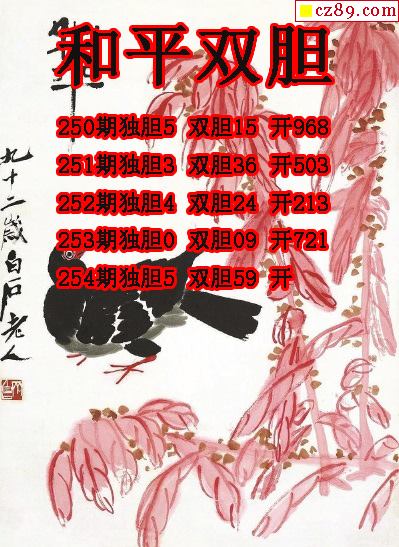 cz89.com
和平双胆
250期独胆5 双胆15 开968
251期独胆3 双胆36 开503
252期独胆4 双胆24 开213
253期独胆0 双胆09 开721
254期独胆5 双胆59 开
和平
九十二歲白石老人